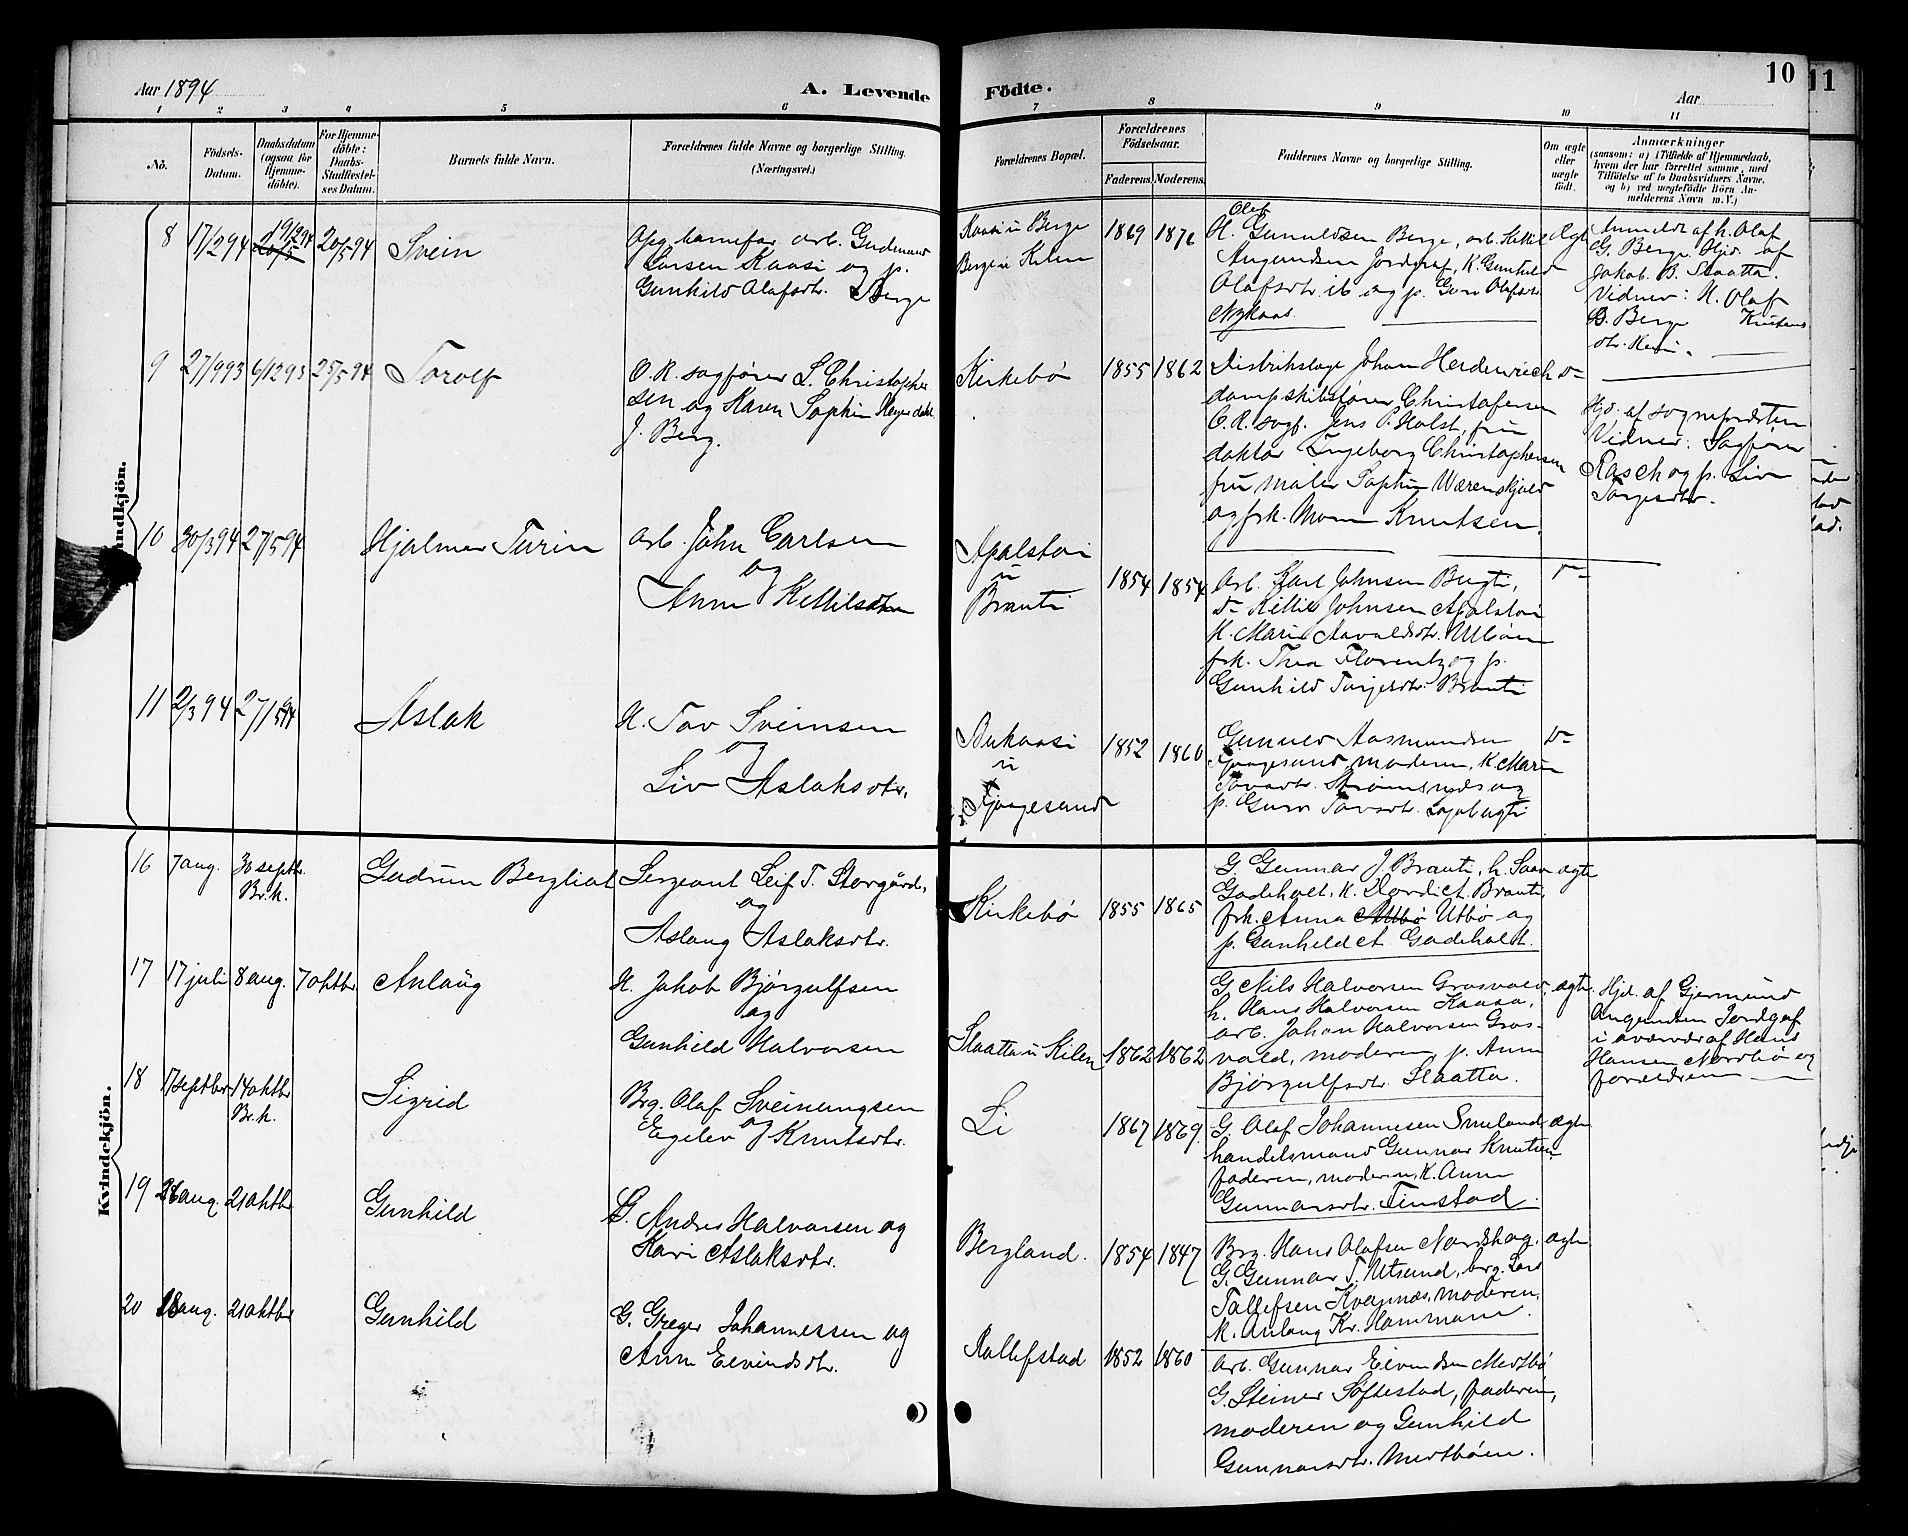 Aar 1894
A. Levende
Födte.
Aar
10
11
1 2 3 4 5 6 7 8 9 10 11
No.
Födsels-
Datum.
Daabsdatum
(ogsaa for
Hjemme-
döbte).
For Hjemme-
döbte:
Daabs-
Stadfæstel-
ses Datum.
Barnets fulde Navn.
Forældrenes fulde Navne og borgerlige Stilling.
(Næringsvei.)
Forældrenes Bopæl.
Forældrenes
Födselsaar.
Faderens.
Moderens.
Faddernes Navne og borgerlige Stilling.
Om ægte
eller
uægte
födt.
Anmærkninger
(saasom: a) i Tilfælde af Hjemmedaab,
hvem der har forrettet samme, med
Tilföielse af to Daabsvidners Navne,
og b) ved uægtefödte Börn An-
melderens Navn m. V.)
Mandkjön.
8 17/2 94 19/2 94 20/5 94 Svein
Opg. barnefar arb. Gudmund
Larsen Kaasi og p.
Gunhild Olafsdtr. Berge
Kaasi u Berge
Berge u Kilen
1869 1876
Olaf
K. Gunuldsen Berge, arb. Kittil
Augundsen Jordgraf, K. Gunhild
Olafsdtr. ib og p. Guro Olafsdtr.
Nykaas
Uægte
Anmeldt af h. Olaf
G. Berge. Hjd. af
Jakob B. Slaatta.
Vidner: K. Olaf
G. Berge
9 27/9 93 6/12 93 25/5 94 Torolf
O.R. sagfører L. Christopher
sen og Karen Sophie
J. Berg.
Kirkebø
1855 1862
Distriktslæge Johan Heidenreich
dampskibsfører Christofersen
O.R. sagf. Jens P. Holst, fru
doktor Ingeborg Christophersen
fru maler Sophie Wærenskjold
og frk. Mom Knutsen.
D-
Hjd. af sognepræsten
Vidner: Sagfører
Rasch og p. Liv
Torgersdtr.
10 30/3 94 27/5 94 Hjalmer Turin
arb. John Carlsen
og
Anne Kittilsdtr
Apalstøi
u
Brauti
1854 1854
Arb. Karl Johnsen Bergti,
D- Kittil Johnsen Apalstøi
K. Marie Aavaldsdtr. Utbøen
frk. Thea Florentz og p.
Gunhild Torjersdtr. Brauti
D-
11 2/3 94 27/5 94 Aslak
K. Tov Sveinsen
og
Liv Aslaksdtr.
Aukaasi
u
Fjaagesund
1852 1860
Gunnuld Aasmundsen
Fjaagesund, moderen, K. Maren
Tovsdtr. Strømsnds og
p. Guro Tovsdtr. Lopebugti
D-
Kvindekjön.
16 7 aug. 30 septbr.
Br.k.
Gudrun Bergliot
Sergeant Leif T. Storgård,
og
Aslaug Aslaksdtr.
Kirkebø
1855 1865
G. Gunnar J. Brauti, h. Saav
Gadeholt, K. Dordi ct. Brauti,
frk. Anna Utbø og
p. Gunhild ct Gadeholt.
ægte
17 17 juli 8 aug. 7 oktbr. Anlaug
K. Jakob Bjørgulfsen
og
Gunhild Halvorsen
Slaatta u Kilen
1862 1862
G. Nils Halvorsen Grosvold,
h. Hans Halvorsen Kaasa,
arb. Johan Halvorsen Gros-
vold, moderen, p. Anne
Bjørgulfsdtr. Slaatta.
ægte.
Hjd. af Gjermund
Augundsen Jordgraf
i overvær af Hans
Hansen Nordbø og
forældrene
18 17 septbr 14 oktbr
Br.k.
Sigrid
Brg. Olaf Sveinungsen
og
Egelev Knutsdtr.
Li
1867 1869
G. Olaf Johannesen Smuland
handelsmand Gunnar Knutsen
faderen, moderen, K. Anne
Gunnarsdtr. Tinstad
ægte
19 26 aug. 21 oktbr Gunhild
G. Andres Halvorsen og
Kari Aslaksdtr.
Bergland.
1854 1847
Brg. Hans Olafsen Nordshog.
G. Gunnar T. Utsund, brg. Lars
Tallefsen Kvernnæs, moderen,
K. Anlaug Kr. Hommane.
ægte
20 28 aug. 21 oktbr Gunhild
G. Greger Johannessen og
Ann Eivindsdtr.
Rollefstad
1852 1860
Arb. Gunnar Eivindsen Mertbø
G. Steiner Søftestad, faderen,
moderen og Gunhild
Gunnarsdtr. Mertbøen.